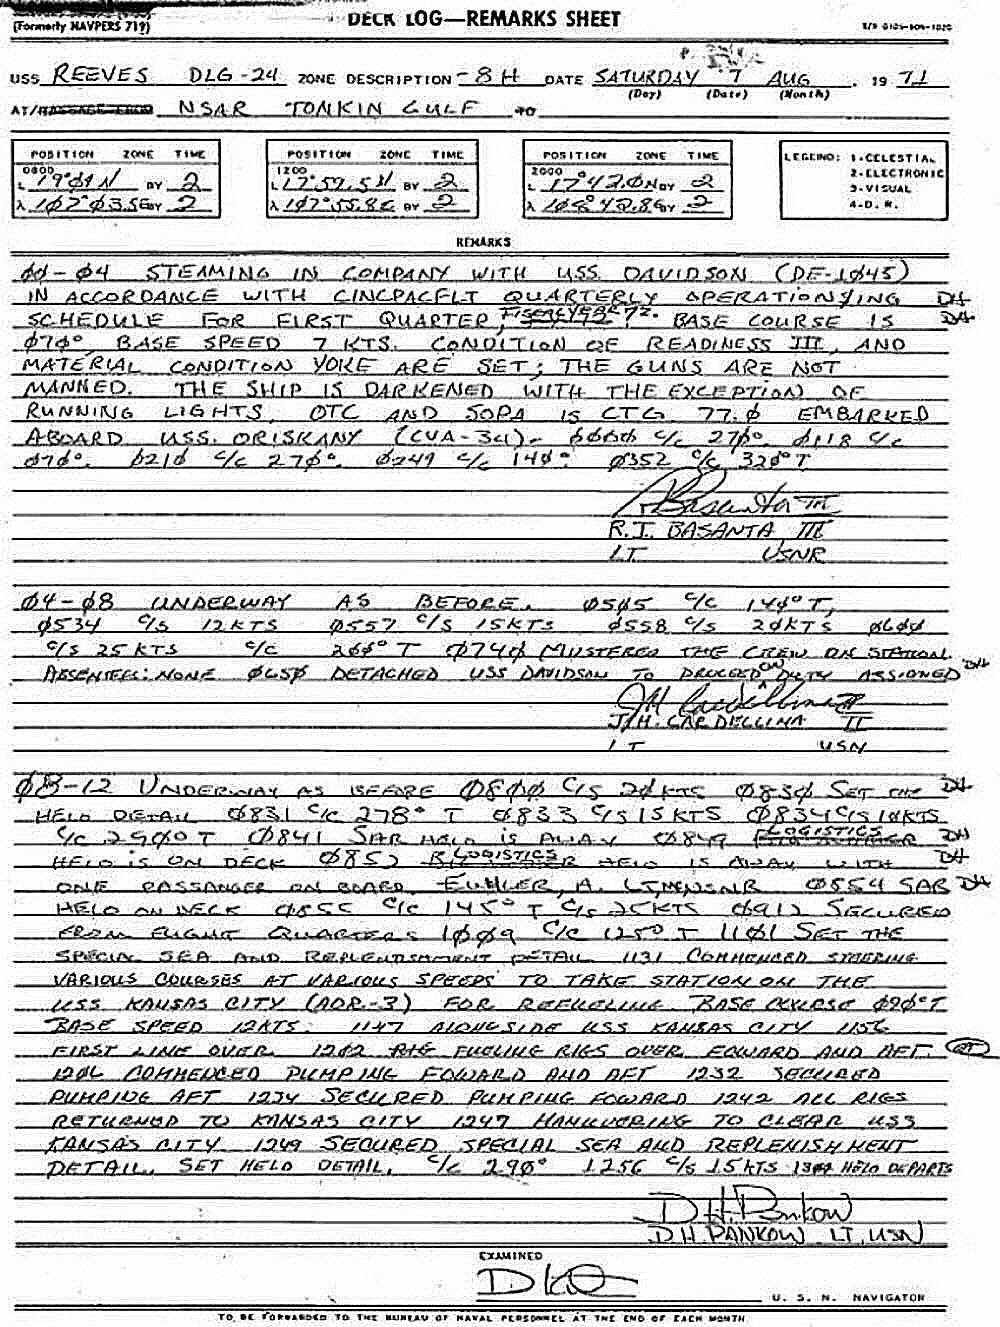 DECK LOG—REMARKS SHEET
(Formerly NAVPERS 719)
USS REEVES DLG-24 ZONE DESCRIPTION -8H DATE SATURDAY 7 AUG 19 71
(Day) (Date) (Month)
AT/PASSAGE FROM NSAR TONKIN GULF TO
POSITION ZONE TIME
0800
L 19°01 N BY 2
λ 107°03.5E BY 2
POSITION ZONE TIME
1200
L 17°59.5N BY 2
λ 107°55.8E BY 2
POSITION ZONE TIME
2000
L 17°42.0N BY 2
λ BY 2
LEGEND: 1-CELESTIAL
2-ELECTRONIC
3-VISUAL
4-D. R.
REMARKS
ØØ-Ø4 STEAMING IN COMPANY WITH USS DAVIDSON (DE-1Ø45)
IN ACCORDANCE WITH CINCPACFLT QUARTERLY OPERATIONS/ING DH
SCHEDULE FOR FIRST QUARTER, FISCAL YEAR 72. BASE COURSE IS DH
Ø7Ø° BASE SPEED 7 KTS. CONDITION OF READINESS III, AND
MATERIAL CONDITION YOKE ARE SET; THE GUNS ARE NOT
MANNED. THE SHIP IS DARKENED WITH THE EXCEPTION OF
RUNNING LIGHTS. OTC AND SOPA IS CTG 77.Ø EMBARKED
ABOARD USS. ORISKANY (CVA-34). C/C 27Ø°. Ø118 C/C
Ø7Ø°. Ø21Ø C/C 27Ø°. Ø249 C/C 14Ø° Ø352 C/C 32Ø°T
R Basanta III
R.I. BASANTA III
LT USNR
Ø4-Ø8 UNDERWAY AS BEFORE. Ø5Ø5 C/C 14Ø°T,
Ø534 C/S 12KTS Ø557 C/S 15KTS Ø558 C/S 2ØKTS Ø6ØØ
C/S 25 KTS C/C 2ØØ°T Ø74Ø MUSTERED THE CREW ON STATION.
ABSENTEES: NONE Ø65Ø DETACHED USS DAVIDSON TO PROCEED ON DUTY ASSIGNED DH
JH Cardellina II
J.H. CARDELLINA II
LT USN
Ø8-12 UNDERWAY AS BEFORE Ø8ØØ C/S 2ØKTS Ø83Ø SET THE DH
HELO DETAIL Ø831 C/C 278° T Ø833 C/S 15 KTS Ø834 C/S 1ØKTS
C/C 29Ø°T Ø841 SAR HELO IS AWAY Ø849 LOGISTICS DH
HELO IS ON DECK Ø852 LOGISTICS HELO IS AWAY WITH DH
ONE PASSANGER ON BOARD. A. Ø554 SAR DH
HELO ON DECK Ø855 C/C 145° T C/S 25KTS Ø912 SECURED
FROM FLIGHT QUARTERS 1ØØ9 C/C 125° T 11Ø1 SET THE
SPECIAL SEA AND REPLENISHMENT DETAIL 1131 COMMENCED STEERING
VARIOUS COURSES AT VARIOUS SPEEDS TO TAKE STATION ON THE
USS KANSAS CITY (AOR-3) FOR REFUELING BASE COURSE Ø9Ø°T
BASE SPEED 12KTS. 1147 ALONGSIDE USS KANSAS CITY 1156
FIRST LINE OVER. 12Ø2 FUELING RIGS OVER FOWARD AND AFT.
12Ø6 COMMENCED PUMPING FOWARD AND AFT 1232 SECURED
PUMPING AFT 1234 SECURED PUMPING FOWARD 1242 ALL RIGS
RETURNED TO KANSAS CITY 1247 MANUVERING TO CLEAR USS
KANSAS CITY 1249 SECURED SPECIAL SEA AND REPLENISHMENT
DETAIL, SET HELO DETAIL, C/C 290° 1256 C/S 15 KTS HELO DEPARTS
D.H. Pankow
D.H. PANKOW LT, USN
EXAMINED
U. S. N. NAVIGATOR
TO BE FORWARDED TO THE BUREAU OF NAVAL PERSONNEL AT THE END OF EACH MONTH